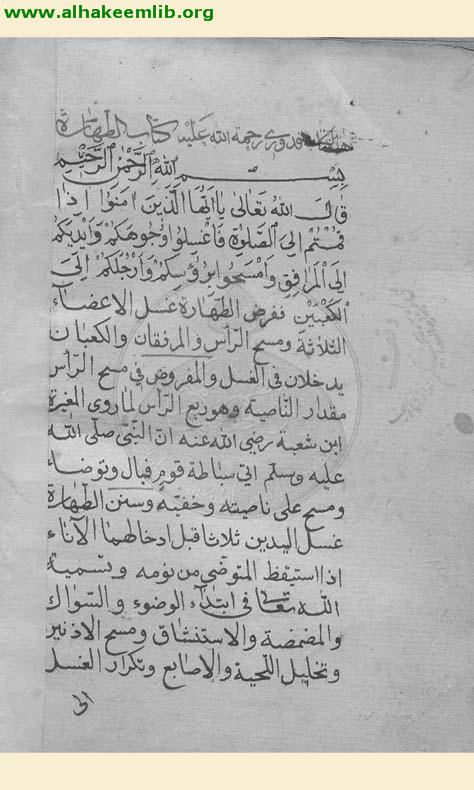 www.alhakeemlib.org
قدوري رحمة الله عليه كتاب الطهارة
بسم الله الرحمن الرحيم
قال الله تعالى يا ايها الذين امنوا اذا
قمتم الى الصلوة فاغسلوا وجوهكم وايديكم
الى المرافق وامسحوا برؤسكم وارجلكم الى
الكعبين ففرض الطهارة غسل الاعضاء
الثلاثة ومسح الرأس والمرفقان والكعبان
يدخلان في الغسل والمفروض في مسح الرأس
مقدار الناصية وهو ربع الرأس لما روى المغيرة
ابن شعبة رضى الله عنه ان النبى صلى الله
عليه وسلم اتى سباطة قوم فبال وتوضاء
ومسح على ناصيته وخفيه وسنن الطهارة
غسل اليدين ثلاثا قبل ادخالهما الآناء
اذا استيقظ المتوضى من نومه وتسمية
الله تعالى فى ابتداء الوضوء والسواك
والمضمضة والاستنشاق ومسح الاذنين
وتخليل اللحية والاصابع وتكرار الغسل
الى